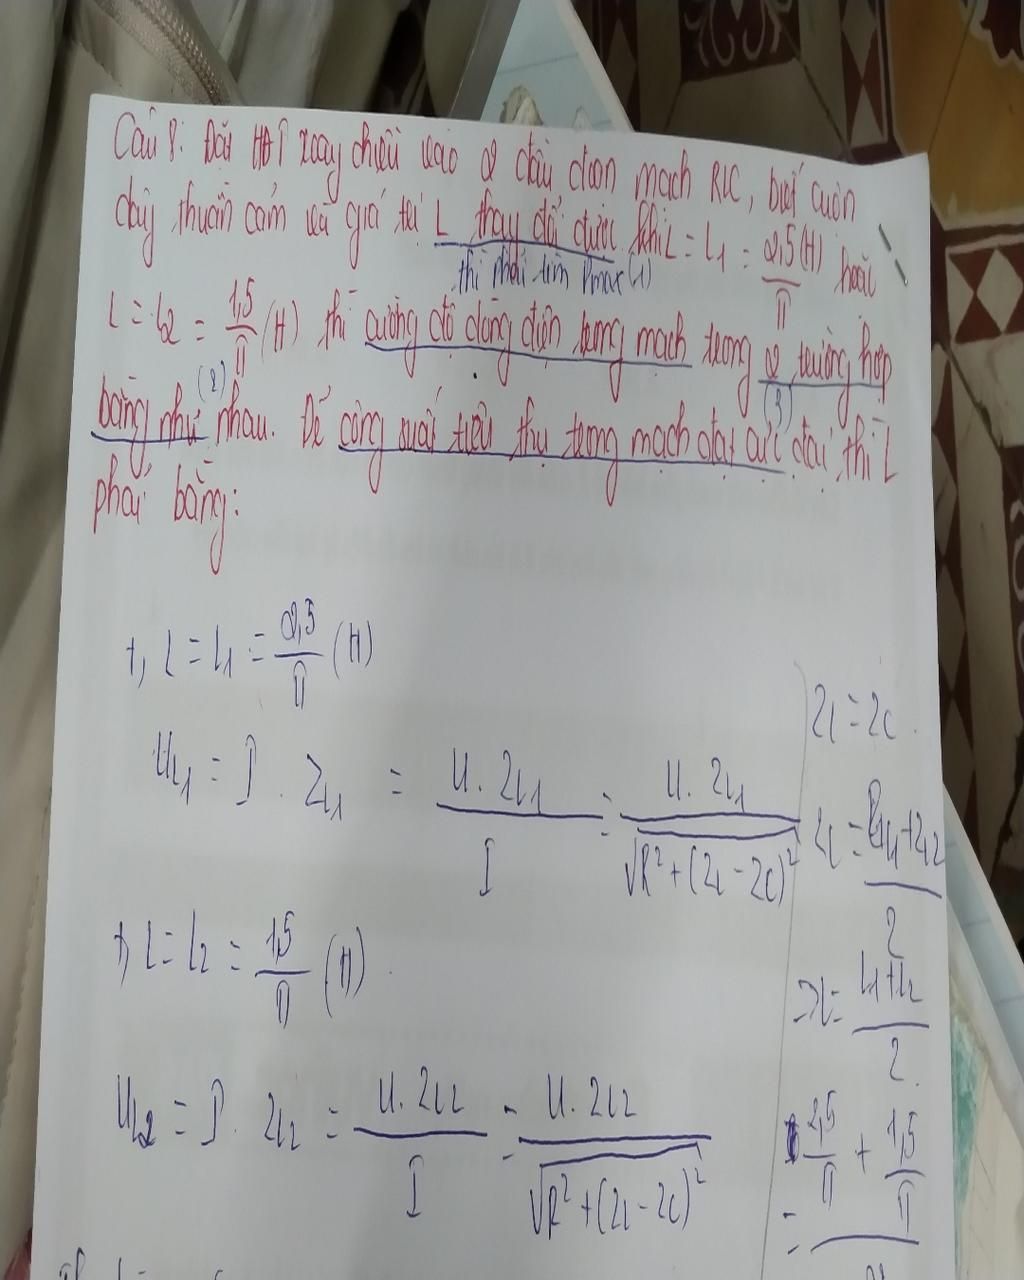 Câu 8: Đặt HĐT xoay chiều vào 2 đầu đoạn mạch RLC, biết cuộn
dây thuần cảm và giá trị L thay đổi được. Khi L = L1 = 2,5/π (H) hoặc
thì phải tìm Pmax (1)
L = L2 = 1,5/π (H) thì cường độ dòng điện trong mạch trong 2 trường hợp
(2) (3)
bằng như nhau. Để công suất tiêu thụ trong mạch đạt cực đại thì L
phải bằng:
+, L = L1 = 2,5/π (H)
UL1 = I . ZL1 = U.ZL1/I = U.ZL1/√R²+(ZL-ZC)²
+, L = L2 = 1,5/π (H)
UL2 = I. ZL2 = U.ZL2/I = U.ZL2/√R²+(ZL-ZC)²
ZL = ZC.
ZL = ZL1+ZL2/2
=> L = L1+L2/2.
= 2,5/π + 1,5/π